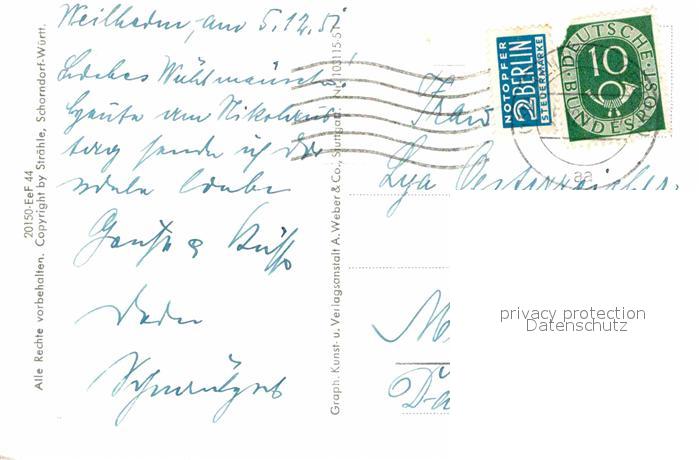 Weilheim, am 5.12.51
Liebes Wühlmäusch!
Heute am Nikolaus
tag sende ich Dir
viele liebe
Grüße & Küsse
Dein
Frau
Lya Oesterreicher
M
Da
NOTOPFER
2 BERLIN
STEUERMARKE
DEUTSCHE
BUNDESPOST
10
aa
privacy protection
Datenschutz
20150-EeF 44
Alle Rechte vorbehalten. Copyright by Strähle, Schorndorf-Württ.
Graph. Kunst- u. Verlagsanstalt A. Weber & Co., Stuttgart